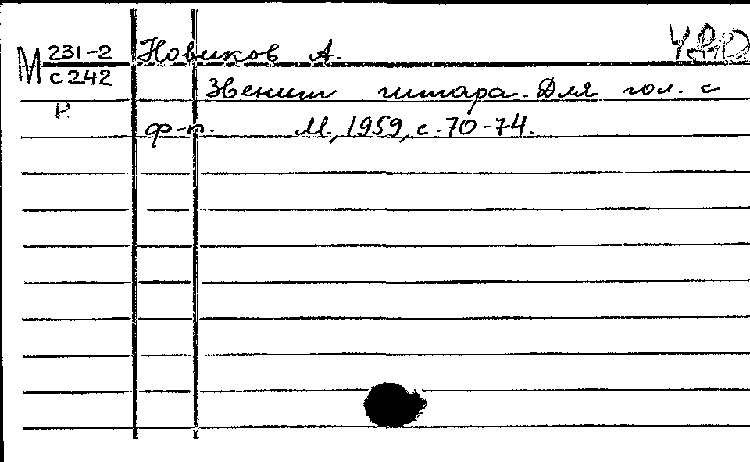 М 231-2 Новиков А.
с 242 Звенит гитара. Для гол. с
н
ф-п. М., 1959, с. 70-74.